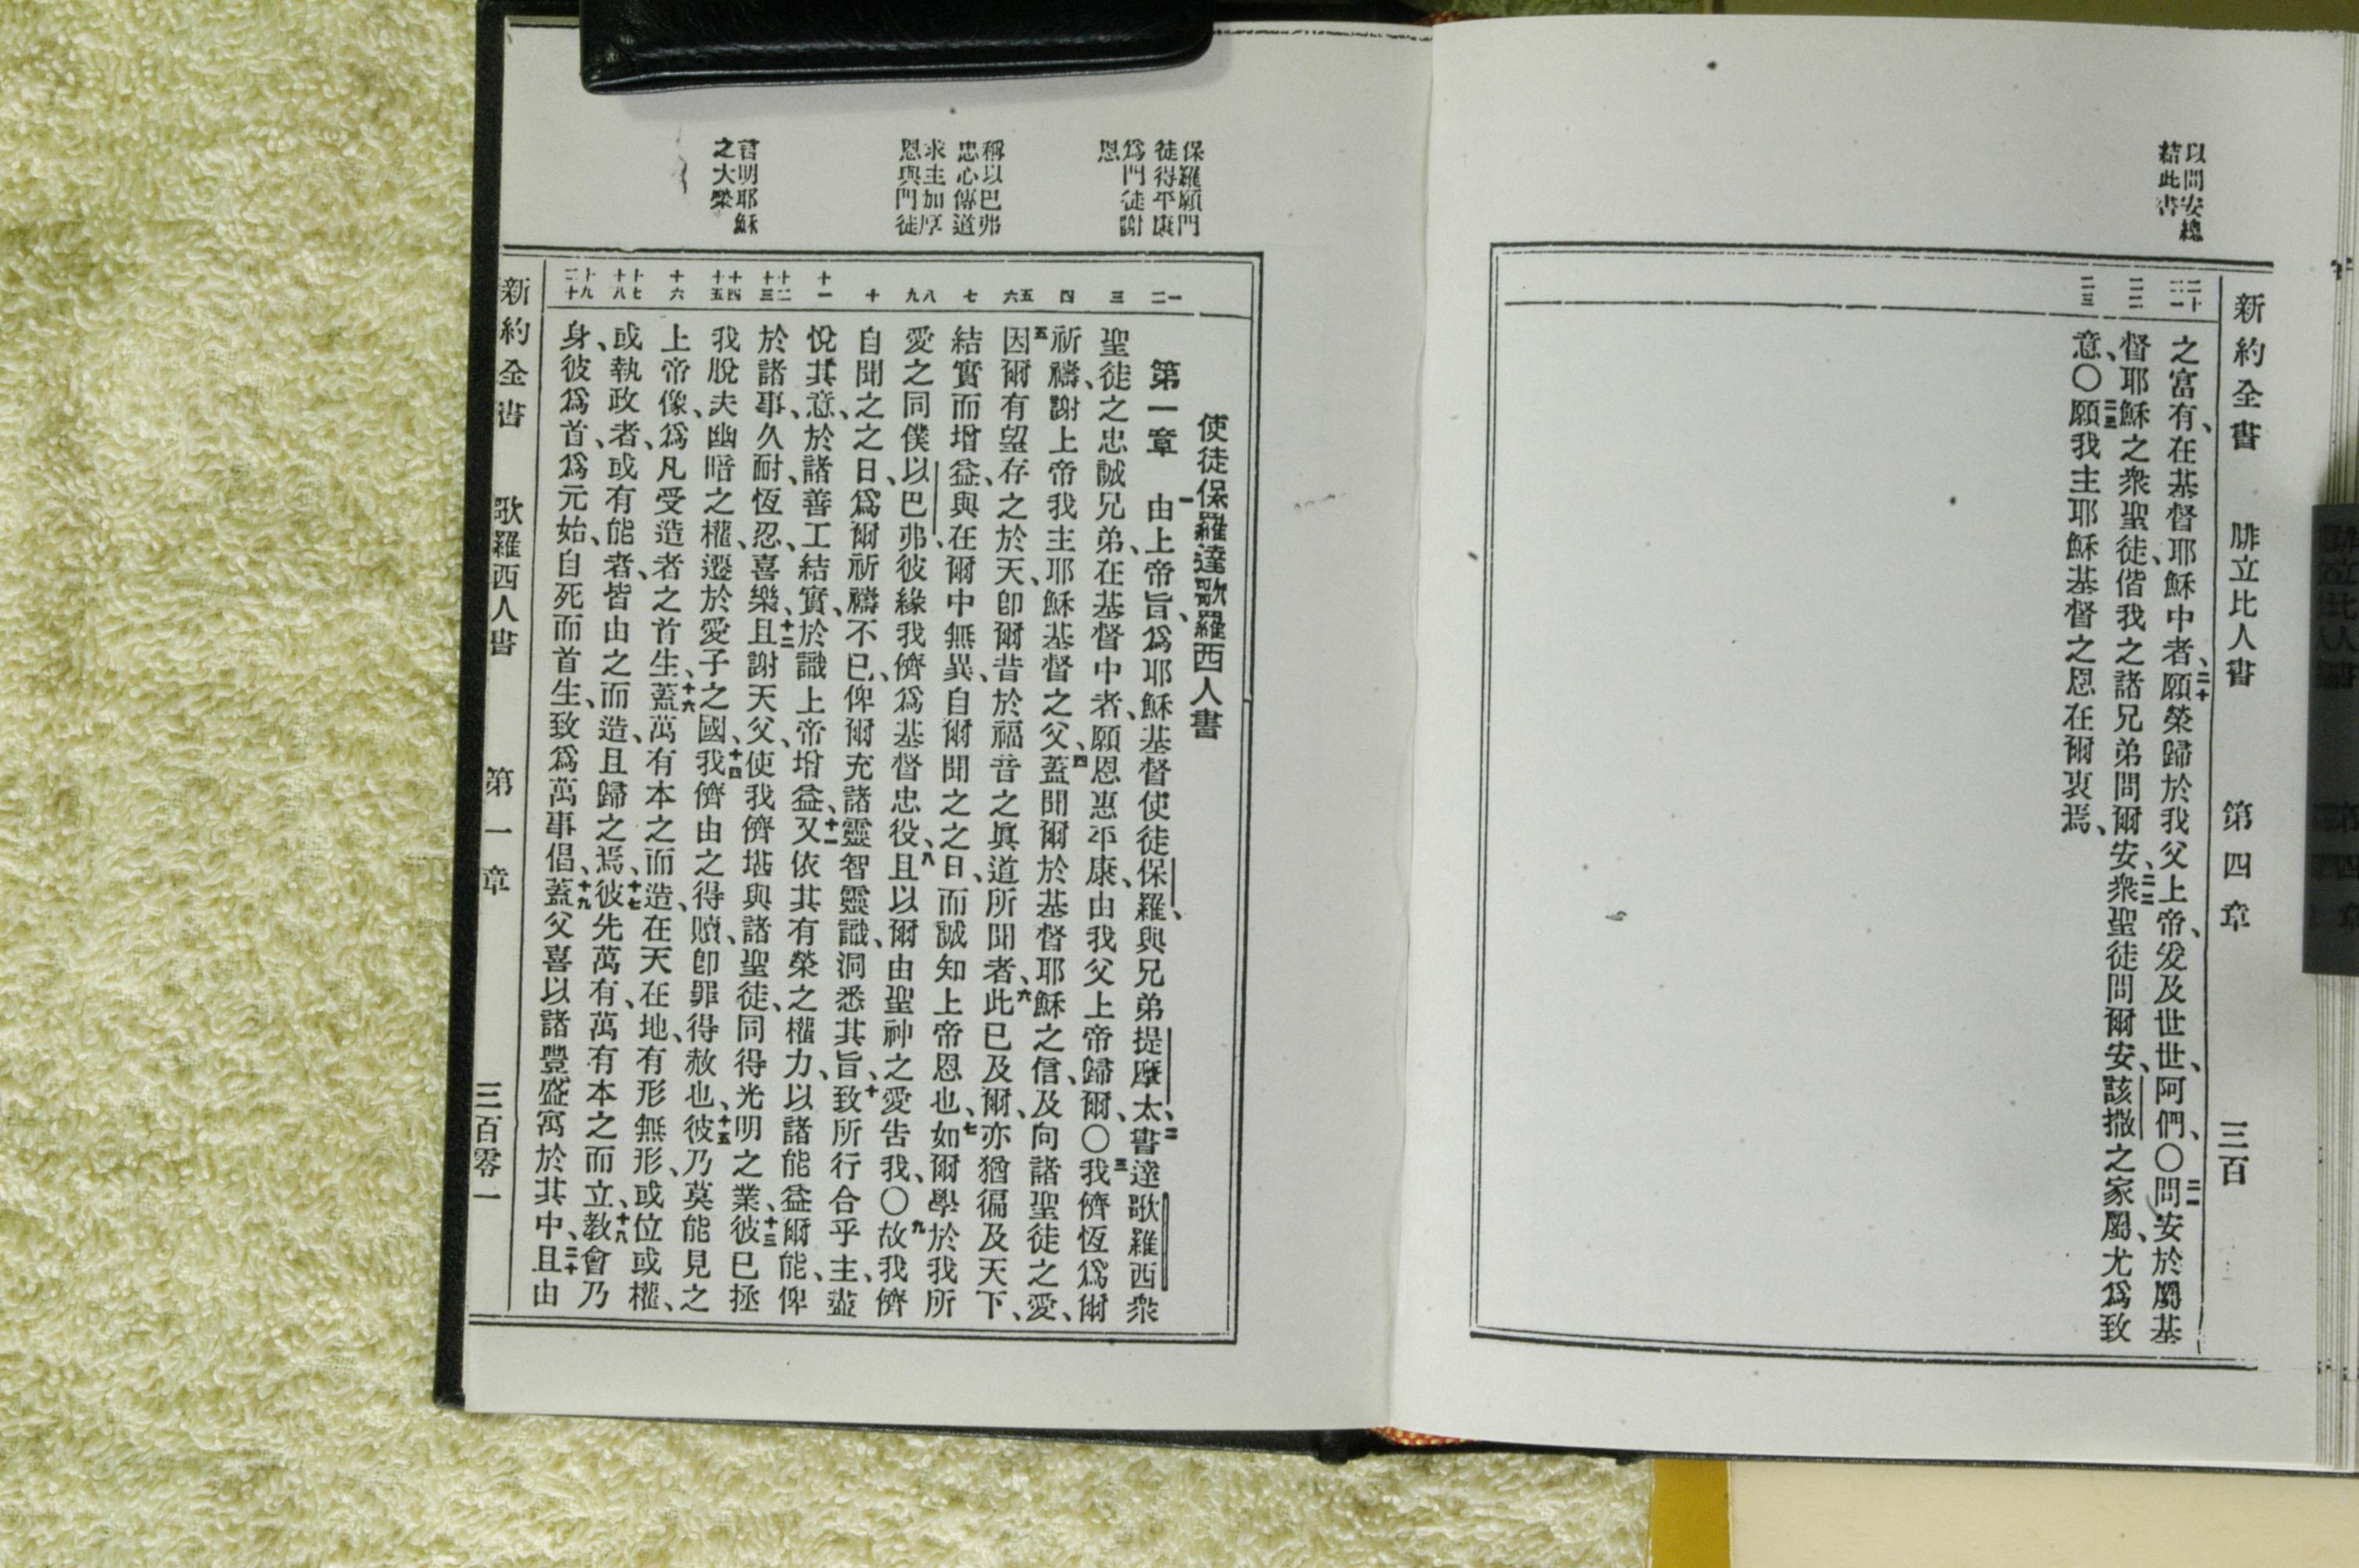 以問安總
結此書
新約全書 腓立比人書 第四章 三百
二十
二一
二二
二三
之富有、在基督耶穌中者、二十願榮歸於我父上帝、爰及世世、阿們、〇二一問安於屬基
督耶穌之衆聖徒、偕我之諸兄弟問爾安、二二衆聖徒問爾安、該撒之家屬、尤爲致
意、〇二三願我主耶穌基督之恩在爾衷焉、
保羅願門
徒得平康
爲門徒謝
恩
稱以巴弗
忠心傳道
求主加厚
恩與門徒
言明耶穌
之大榮
一
二
三
四
五
六
七
八
九
十
十一
十二
十三
十四
十五
十六
十七
十八
十九
二十
使徒保羅達歌羅西人書
第一章 一由上帝旨、爲耶穌基督使徒保羅、與兄弟提摩太、二書達歌羅西衆
聖徒之忠誠兄弟、在基督中者、願恩惠平康、由我父上帝歸爾、〇三我儕恆爲爾
祈禱、謝上帝我主耶穌基督之父、四蓋聞爾於基督耶穌之信、及向諸聖徒之愛、
五因爾有望存之於天、卽爾昔於福音之眞道所聞者、六此已及爾、亦猶徧及天下、
結實而增益、與在爾中無異、自爾聞之之日、而誠知上帝恩也、七如爾學於我所
愛之同僕以巴弗、彼緣我儕爲基督忠役、八且以爾由聖神之愛告我、〇九故我儕
自聞之之日、爲爾祈禱不已、俾爾充諸靈智靈識、洞悉其旨、十致所行合乎主、盡
悅其意、於諸善工結實、於識上帝增益、十一又依其有榮之權力、以諸能益爾能、俾
於諸事、久耐、恆忍、喜樂、十二且謝天父、使我儕堪與諸聖徒、同得光明之業、十三彼已拯
我脫夫幽暗之權、遷於愛子之國、十四我儕由之得贖、卽罪得赦也、十五彼乃莫能見之
上帝像、爲凡受造者之首生、十六蓋萬有本之而造、在天在地、有形無形、或位或權、
或執政者、或有能者、皆由之而造、且歸之焉、十七彼先萬有、萬有本之而立、十八教會乃
身、彼爲首、爲元始、自死而首生、致爲萬事倡、十九蓋父喜以諸豐盛寓於其中、二十且由
新約全書 歌羅西人書 第一章 三百零一